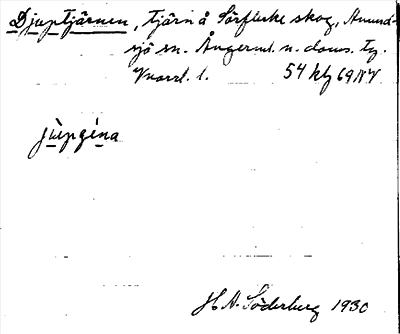 Djuptjärnen, tjärn å Sörflärke skog, Anund-
sjö sn. Ångerml. n. doms. tg.
54 kbl 69 NV
jùpgèna
H. N. Söderberg 1930